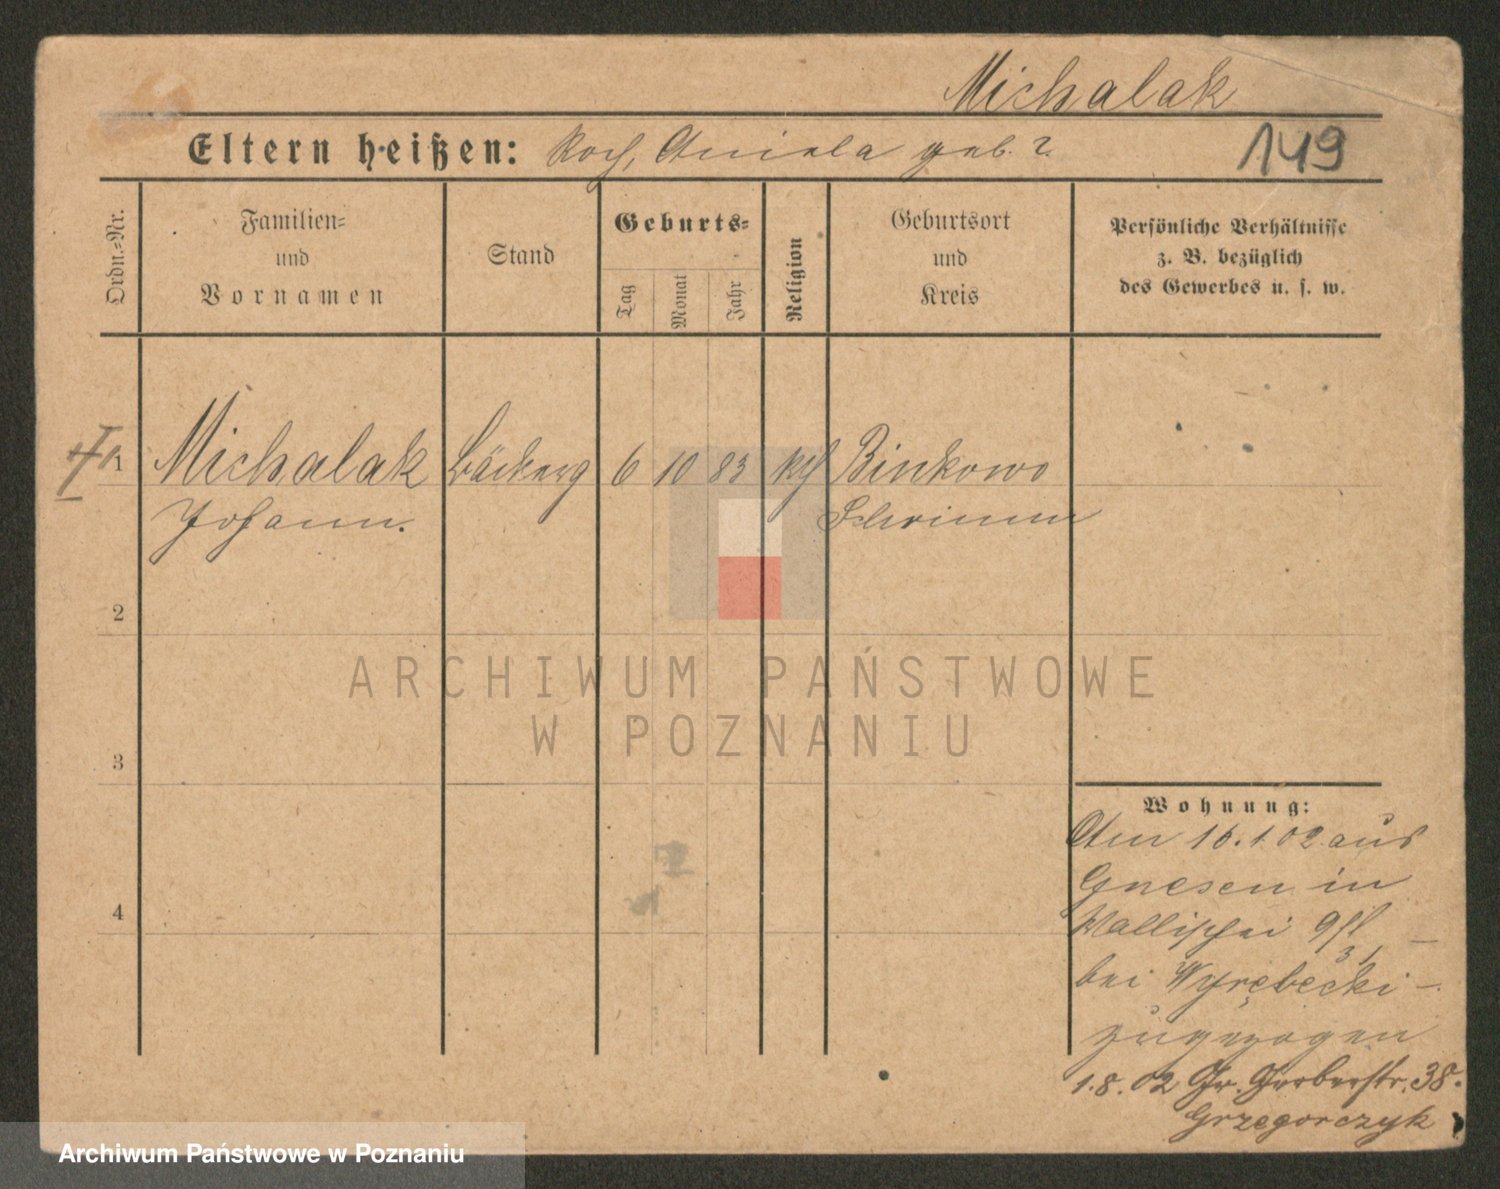 Michalak
149
Eltern heißen: Roch, Aniela geb. ?
Ordn.-Nr.
Familien-
und
Vornamen
Stand
Geburts-
Tag
Monat
Jahr
Religion
Geburtsort
und
Kreis
Persönliche Verhältnisse
z. B. bezüglich
des Gewerbes u. s. w.
1 Michalak Bäckerg 6 10 83 kth Binkowo
Johann. Schrimm
2
3
4
Wohnung:
Am 16.1.02 aus
Gnesen in
Wallischei 9/II
bei Wyrębecki –
zugezogen
1.8.02 Gr. Gerberstr. 38.
Grzegorczyk
ARCHIWUM PAŃSTWOWE
W POZNANIU
Archiwum Państwowe w Poznaniu